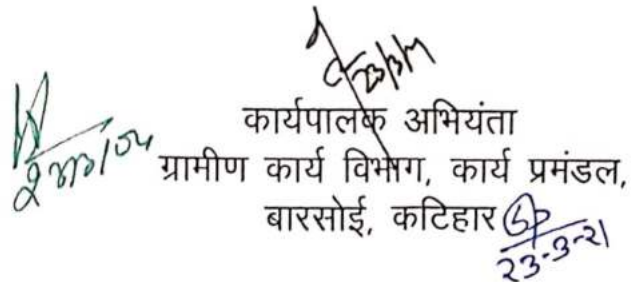 कार्यपालक अभियंता
ग्रामीण कार्य विभाग, कार्य प्रमंडल,
बारसोई, कटिहार
23-3-21